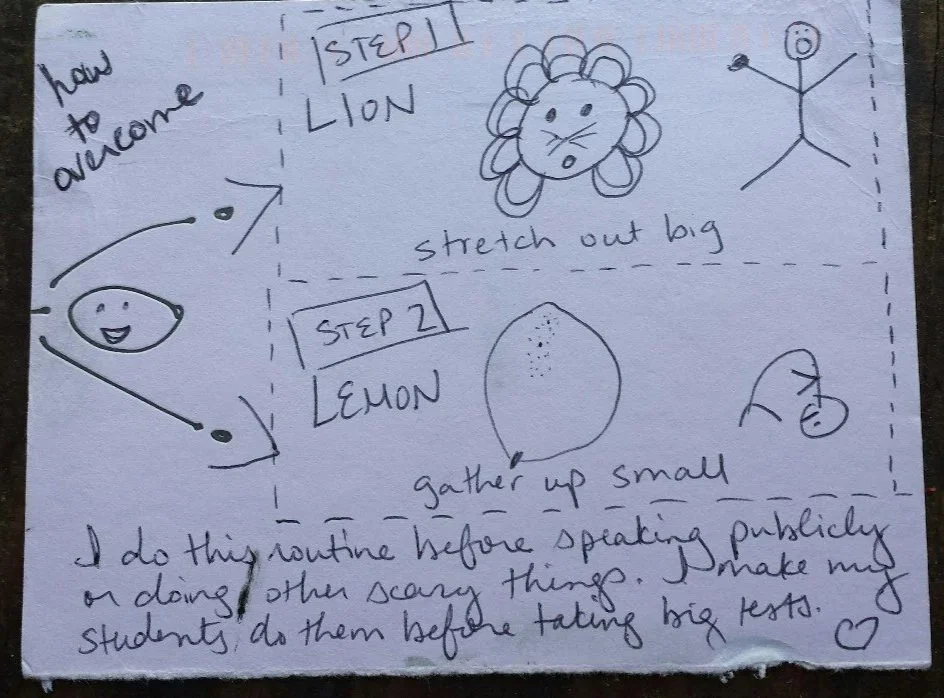 how
to
overcome
STEP 1
LION
stretch out big
STEP 2
LEMON
gather up small
I do this routine before speaking publicly
or doing other scary things. I make my
students do them before taking big tests.